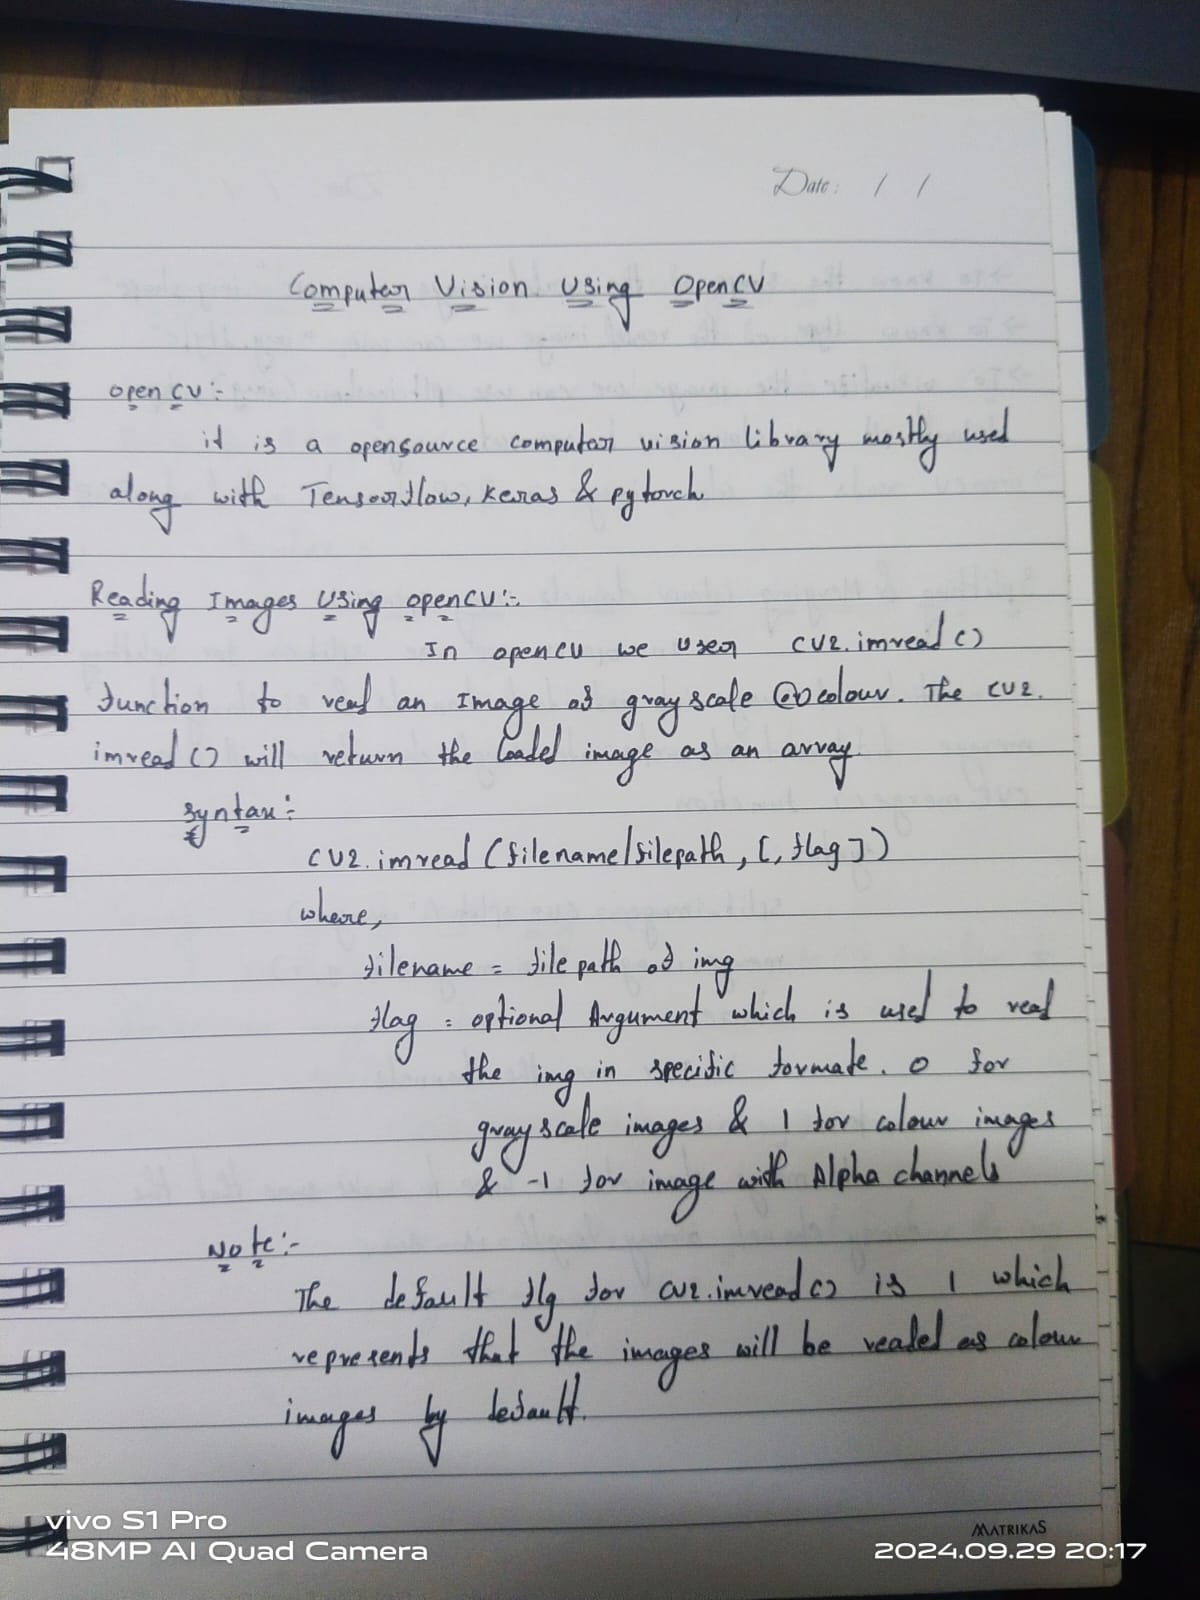 Date: / /
Computer Vision Using OpenCV
open CV :-
it is a opensource computer vision library mostly used
along with Tensorflow, Keras & pytorch
Reading Images Using openCV :-
In opencv we user cv2.imread()
function to read an Image of gray scale (or) colour. The cv2.
imread() will return the loaded image as an array.
Syntax :-
cv2.imread (filename/filepath, [, flag])
where,
filename = file path of img
flag = optional Argument which is used to read
the img in specific formate. 0 for
gray scale images & 1 for colour images
& -1 for image with Alpha channels
Note :-
The default flg for cv2.imread() is 1 which
represents that the images will be readed as colour
images by default.
MATRIKAS
vivo S1 Pro
48MP AI Quad Camera
2024.09.29 20:17